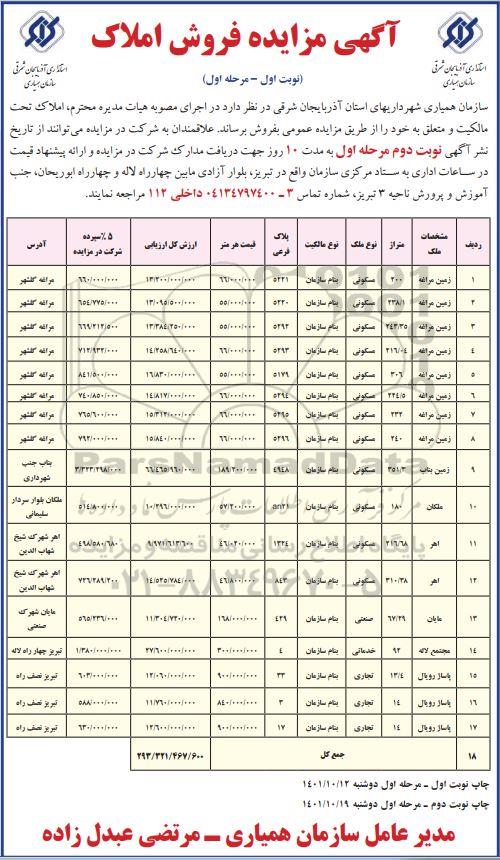 آگهی مزایده فروش املاک
(نوبت اول - مرحله اول)
استانداری آذربایجان شرقی
سازمان همیاری
استانداری آذربایجان شرقی
سازمان همیاری
سازمان همیاری شهرداریهای استان آذربایجان شرقی در نظر دارد در اجرای مصوبه هیات مدیره محترم، املاک تحت
مالکیت و متعلق به خود را از طریق مزایده عمومی بفروش برساند. علاقمندان به شرکت در مزایده می‌توانند از تاریخ
نشر آگهی نوبت دوم مرحله اول به مدت ۱۰ روز جهت دریافت مدارک شرکت در مزایده و ارائه پیشنهاد قیمت
در ساعات اداری به ستاد مرکزی سازمان واقع در تبریز، بلوار آزادی مابین چهارراه لاله و چهارراه ابوریحان، جنب
آموزش و پرورش ناحیه ۳ تبریز، شماره تماس ۳ - ۰۴۱۳۴۷۹۷۴۰۰ داخلی ۱۱۲ مراجعه نمایند.
ردیف مشخصات ملک متراژ نوع ملک نوع مالکیت پلاک فرعی قیمت هر متر ارزش کل ارزیابی ۵٪ سپرده شرکت در مزایده آدرس
۱ زمین مراغه ۲۰۰ مسکونی بنام سازمان ۵۲۲۱ ۶۶/۰۰۰/۰۰۰ ۱۳/۲۰۰/۰۰۰/۰۰۰ ۶۶۰/۰۰۰/۰۰۰ مراغه گلشهر
۲ زمین مراغه ۲۳۸/۱ مسکونی بنام سازمان ۵۲۲۰ ۵۵/۰۰۰/۰۰۰ ۱۳/۰۹۵/۵۰۰/۰۰۰ ۶۵۴/۷۷۵/۰۰۰ مراغه گلشهر
۳ زمین مراغه ۲۴۳/۳۵ مسکونی بنام سازمان ۵۲۹۲ ۵۵/۰۰۰/۰۰۰ ۱۳/۳۸۴/۲۵۰/۰۰۰ ۶۶۹/۲۱۲/۵۰۰ مراغه گلشهر
۴ زمین مراغه ۲۱۶/۰۴ مسکونی بنام سازمان ۵۲۹۳ ۶۶/۰۰۰/۰۰۰ ۱۴/۲۵۸/۶۴۰/۰۰۰ ۷۱۲/۹۳۲/۰۰۰ مراغه گلشهر
۵ زمین مراغه ۳۰۶ مسکونی بنام سازمان ۵۱۷۹ ۵۵/۰۰۰/۰۰۰ ۱۶/۸۳۰/۰۰۰/۰۰۰ ۸۴۱/۵۰۰/۰۰۰ مراغه گلشهر
۶ زمین مراغه ۲۲۴/۵ مسکونی بنام سازمان ۵۲۹۴ ۶۶/۰۰۰/۰۰۰ ۱۴/۸۱۷/۰۰۰/۰۰۰ ۷۴۰/۸۵۰/۰۰۰ مراغه گلشهر
۷ زمین مراغه ۲۳۲ مسکونی بنام سازمان ۵۲۹۵ ۶۶/۰۰۰/۰۰۰ ۱۵/۳۱۲/۰۰۰/۰۰۰ ۷۶۵/۶۰۰/۰۰۰ مراغه گلشهر
۸ زمین مراغه ۲۴۰ مسکونی بنام سازمان ۵۲۹۶ ۶۶/۰۰۰/۰۰۰ ۱۵/۸۴۰/۰۰۰/۰۰۰ ۷۹۲/۰۰۰/۰۰۰ مراغه گلشهر
۹ زمین بناب ۳۵۱/۳ مسکونی بنام سازمان ۴۹۴۸ ۱۸۹/۲۰۰/۰۰۰ ۶۶/۴۶۵/۹۶۰/۰۰۰ ۳/۳۲۳/۲۹۸/۰۰۰ بناب جنب شهرداری
۱۰ ملکان ۱۸۰ مسکونی بنام سازمان ۵۷/۲۰۰/۰۰۰ ۱۰/۲۹۶/۰۰۰/۰۰۰ ۵۱۴/۸۰۰/۰۰۰ ملکان بلوار سردار سلیمانی
۱۱ اهر ۲۱۶/۶۸ مسکونی بنام سازمان ۱۳۲۴ ۴۶/۰۲۰/۰۰۰ ۹/۹۷۱/۶۱۳/۶۰۰ ۴۹۸/۵۸۰/۶۸۰ اهر شهرک شیخ شهاب الدین
۱۲ اهر ۳۱۰/۳۸ مسکونی بنام سازمان ۸۴۳ ۴۶/۸۰۰/۰۰۰ ۱۴/۵۲۵/۷۸۴/۰۰۰ ۷۲۶/۲۸۹/۲۰۰ اهر شهرک شیخ شهاب الدین
۱۳ مایان ۶۷/۲۹ صنعتی بنام سازمان ۴۲۹ ۱۶۸/۰۰۰/۰۰۰ ۱۱/۳۰۴/۷۲۰/۰۰۰ ۵۶۵/۲۳۶/۰۰۰ مایان شهرک صنعتی
۱۴ مجتمع لاله ۹۲ خدماتی بنام سازمان ۴ ۳۰۰/۰۰۰/۰۰۰ ۲۷/۶۰۰/۰۰۰/۰۰۰ ۱/۳۸۰/۰۰۰/۰۰۰ تبریز چهار راه لاله
۱۵ پاساژ رویال ۱۳/۴ تجاری بنام سازمان ۳۳ ۹۰۰/۰۰۰/۰۰۰ ۱۲/۰۶۰/۰۰۰/۰۰۰ ۶۰۳/۰۰۰/۰۰۰ تبریز نصف راه
۱۶ پاساژ رویال ۱۴ تجاری بنام سازمان ۳ ۸۴۰/۰۰۰/۰۰۰ ۱۱/۷۶۰/۰۰۰/۰۰۰ ۵۸۸/۰۰۰/۰۰۰ تبریز نصف راه
۱۷ پاساژ رویال ۱۴ تجاری بنام سازمان ۱۷ ۹۰۰/۰۰۰/۰۰۰ ۱۲/۶۰۰/۰۰۰/۰۰۰ ۶۳۰/۰۰۰/۰۰۰ تبریز نصف راه
۱۸ جمع کل ۲۹۳/۳۲۱/۴۶۷/۶۰۰
ParsNamadData
پایگاه اطلاع رسانی مناقصه و مزایده
۰۲۱-۸۸۳۴۹۶۷۰-۵
چاپ نوبت اول - مرحله اول دوشنبه ۱۴۰۱/۱۰/۱۲
چاپ نوبت دوم - مرحله اول دوشنبه ۱۴۰۱/۱۰/۱۹
مدیر عامل سازمان همیاری - مرتضی عبدل زاده